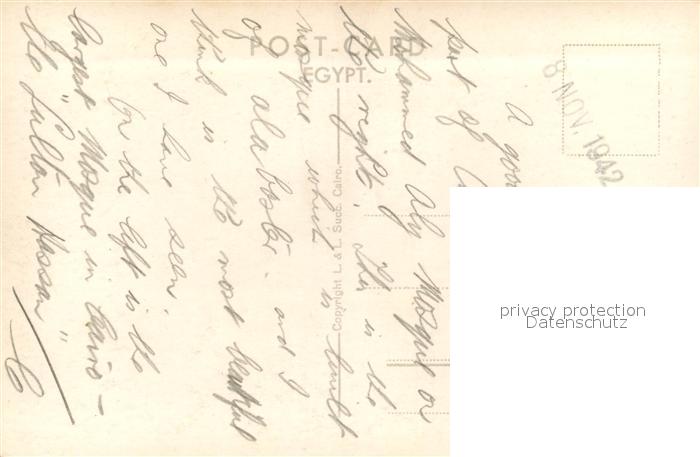 POST-CARD
EGYPT.
8 NOV. 1942
Copyright L. & L. Succ. Cairo.
A good
part of
Mohammed Aly Mosque on
the right. This is the
mosque which is built
of alabaster. and I
think is the most beautiful
one I have seen
On the left is the
largest Mosque in Cairo –
"Sultan Hassan"
privacy protection
Datenschutz